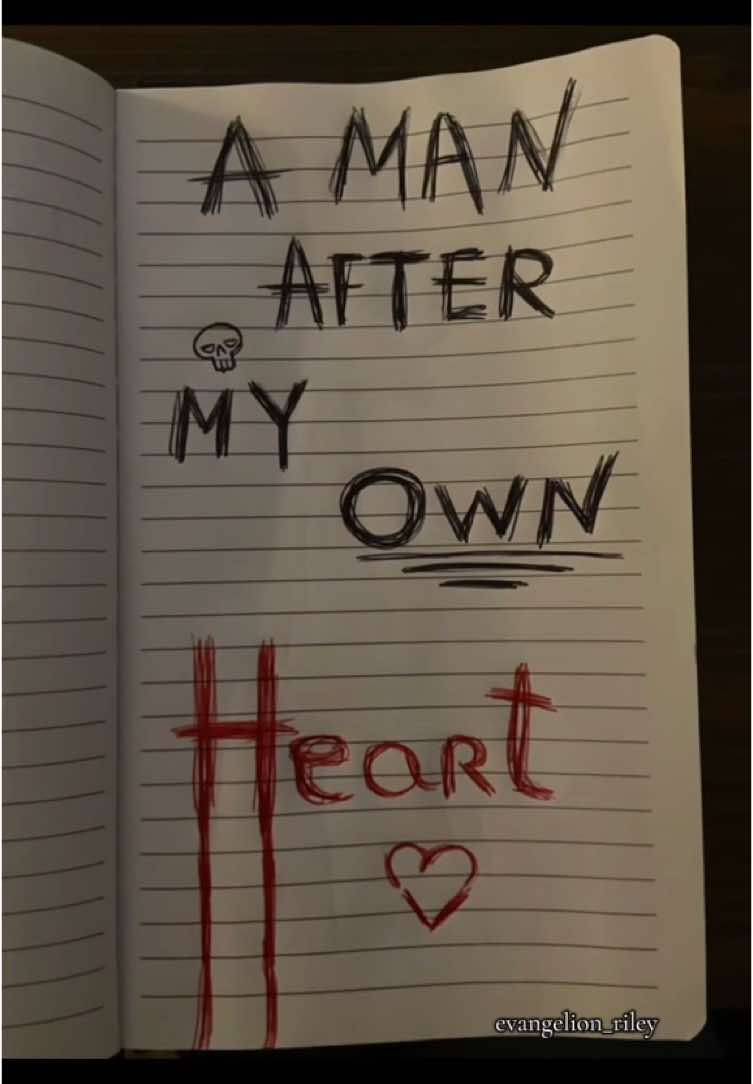 A MAN
AFTER
MY
OWN
HeaRt
evangelion_riley